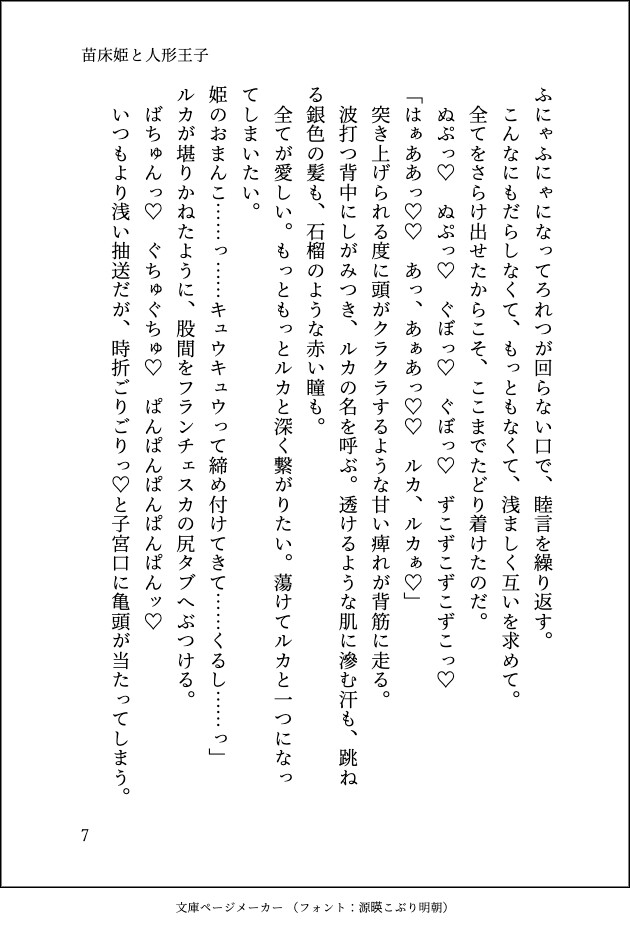 苗床姫と人形王子
ふにゃふにゃになってろれつが回らない口で、睦言を繰り返す。
こんなにもだらしなくて、もっともなくて、浅ましく互いを求めて。
全てをさらけ出せたからこそ、ここまでたどり着けたのだ。
ぬぷっ♡　ぬぷっ♡　ぐぼっ♡　ぐぼっ♡　ずこずこずこずこっ♡
「はぁああっ♡♡　あっ、あぁあっ♡♡　ルカ、ルカぁ♡」
突き上げられる度に頭がクラクラするような甘い痺れが背筋に走る。
波打つ背中にしがみつき、ルカの名を呼ぶ。透けるような肌に滲む汗も、跳ね
る銀色の髪も、石榴のような赤い瞳も。
全てが愛しい。もっともっとルカと深く繋がりたい。蕩けてルカと一つになっ
てしまいたい。
姫のおまんこ……っ……キュウキュウって締め付けてきて……くるし……っ」
ルカが堪りかねたように、股間をフランチェスカの尻タブへぶつける。
ばちゅんっ♡　ぐちゅぐちゅ♡　ぱんぱんぱんぱんぱんッ♡
いつもより浅い抽送だが、時折ごりごりっ♡と子宮口に亀頭が当たってしまう。
7
文庫ページメーカー（フォント：源暎こぶり明朝）